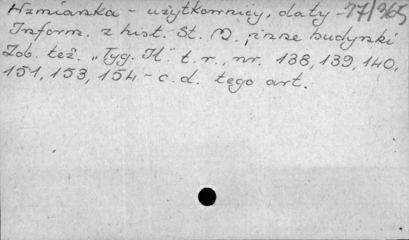 Wzmianka - użytkownicy, daty - 77/365
Inform. z hist. St. M., inne budynki
Zob. też. "Tyg. Il." t. r., nr. 138, 139, 140,
151, 153, 154 - c. d. tego art.